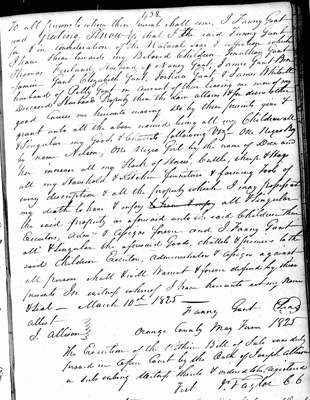 438
To all persons to whom these shall come, I Fanny Gant
send Greeting. Know ye that I the said Fanny Gant
for & in consideration of the Natural love & affection which
I have & bear towards my Beloved Children Jonathan Gant
Thomas husband of Fanny Gant, James Gant
Gant, Elizabeth Gant, Joshua Gant & James Whitsell
husband of Polly Gant on account of their leaving me
Deceased Husbands Property then the law allows & for divers other
good causes me hereunto moving Do by these presents give &
grant unto all the above named being all my Children all
& Singular my Goods & Chattels following Viz One Negro Boy
by name Nelson, One Negro Girl by the name of Dice and
her increase all my Stock of Horses, Cattle, sheep & Hogs
all my Household & Kitchen furniture & farming tools of
every description & all the property which I may possess at
my death to have & enjoy all & Singular
the said property as aforesaid unto the said Children their
Executors, Adms & Assigns forever and I Fanny Gant
all & Singular the aforesaid Goods, chattels & premises to the
said Children Executors, Administrators & Assigns against
all persons shall & will Warrant & forever defend by these
presents In witness whereof I have hereunto set my name
& Seal — March 10th 1825 —
Fanny Gant (Seal)
attest
J. Allison
Orange County May Term 1825
The Execution of the Within Bill of Sale was duly
proved in open Court by the Oath of Joseph Allison
a subscribing Witness thereto & ordered to be Registered
Test J Taylor C C